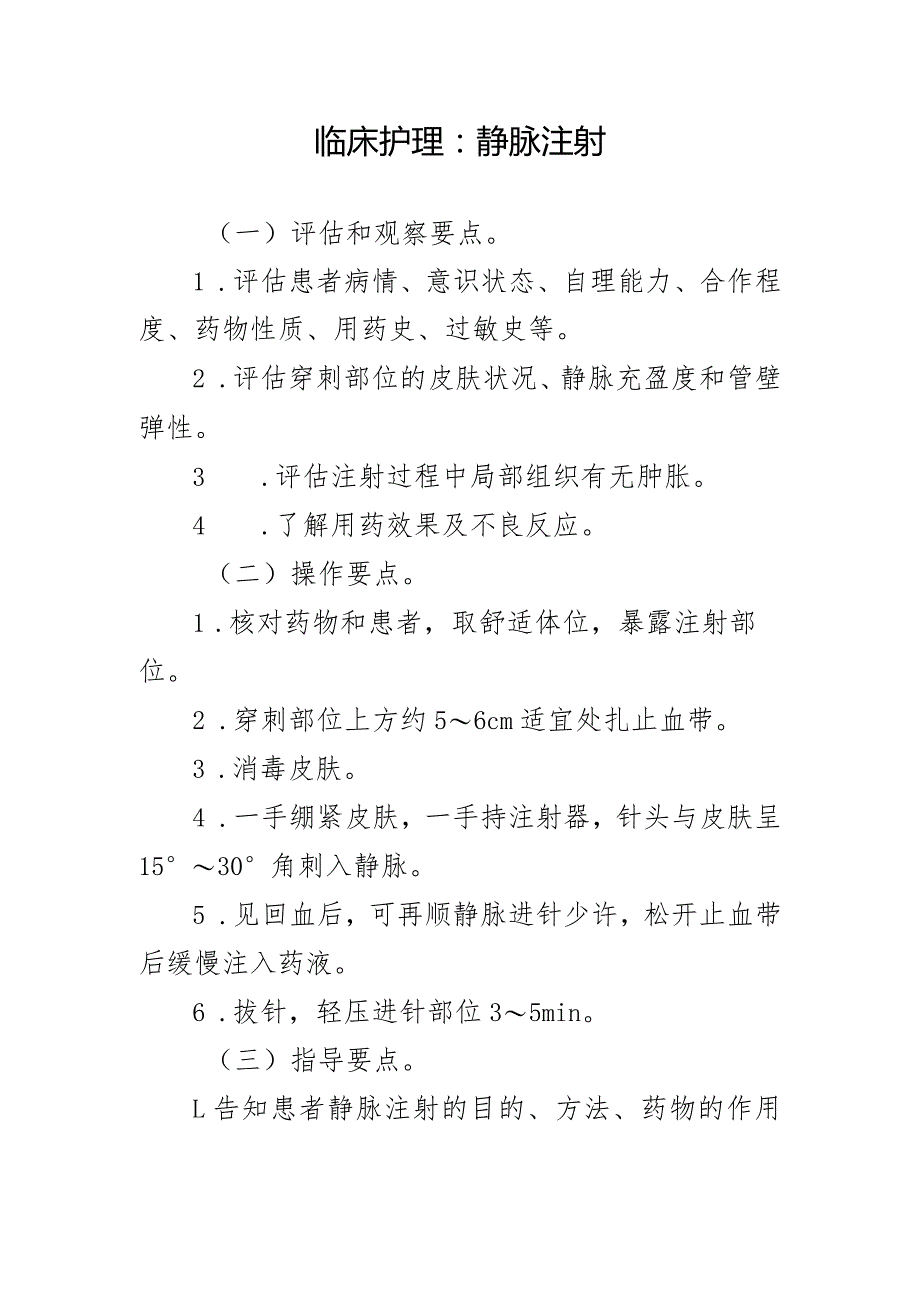 临床护理：静脉注射
（一）评估和观察要点。
1.评估患者病情、意识状态、自理能力、合作程
度、药物性质、用药史、过敏史等。
2.评估穿刺部位的皮肤状况、静脉充盈度和管壁
弹性。
3 .评估注射过程中局部组织有无肿胀。
4 .了解用药效果及不良反应。
（二）操作要点。
1.核对药物和患者，取舒适体位，暴露注射部
位。
2.穿刺部位上方约5～6cm适宜处扎止血带。
3.消毒皮肤。
4.一手绷紧皮肤，一手持注射器，针头与皮肤呈
15°～30°角刺入静脉。
5.见回血后，可再顺静脉进针少许，松开止血带
后缓慢注入药液。
6.拔针，轻压进针部位3～5min。
（三）指导要点。
L告知患者静脉注射的目的、方法、药物的作用